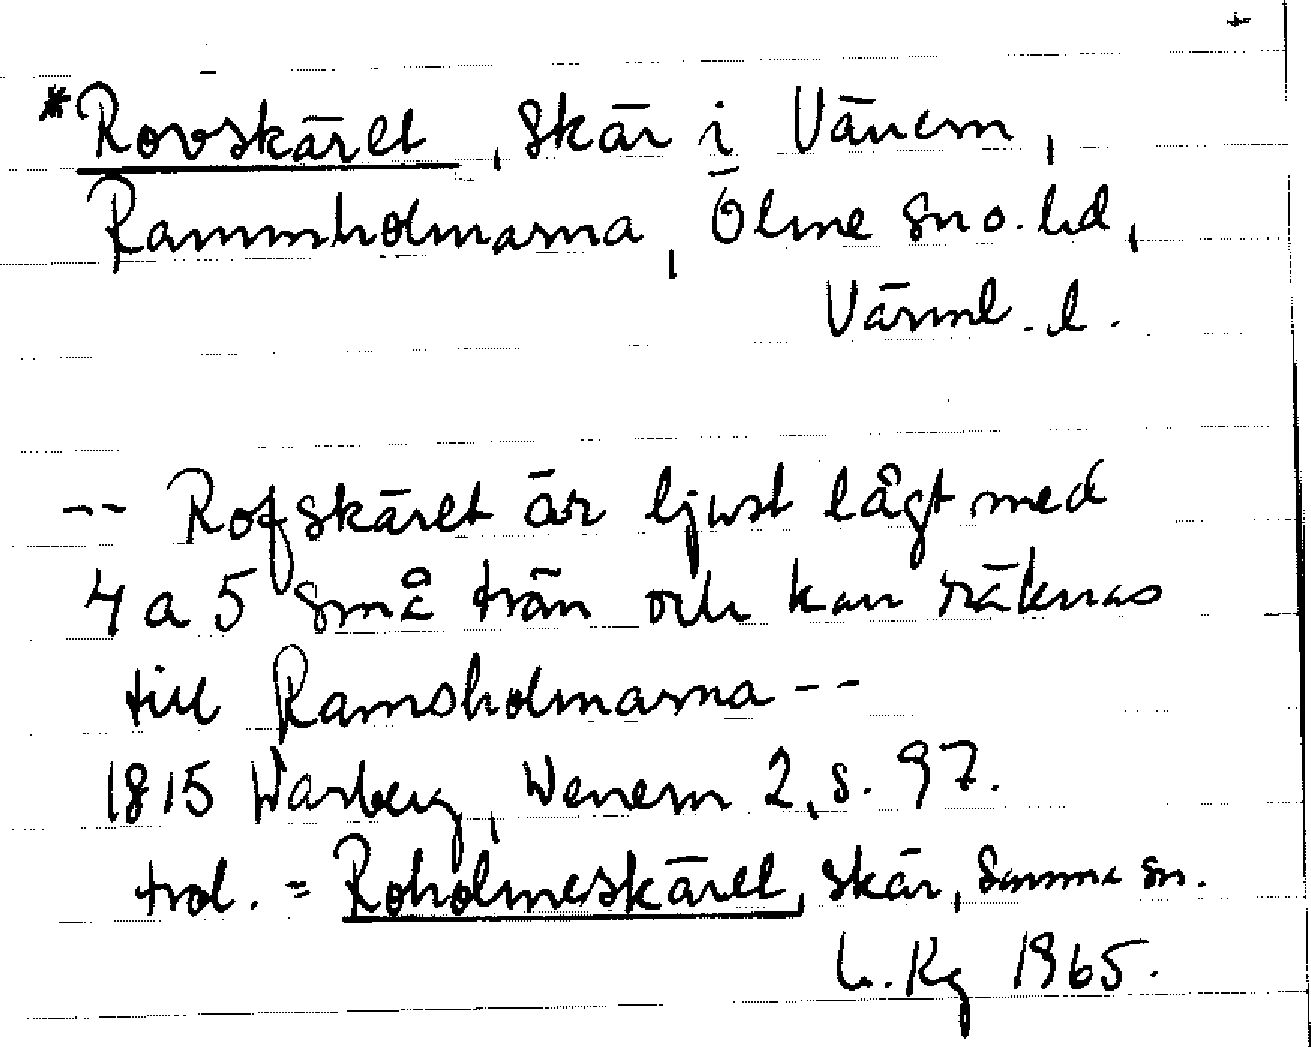 +
*Rovskäret, skär i Vänern,
Rammholmarna, Ölme sn o. hd,
Värml. l.
-- Rofskäret är ljust lågt med
4 a 5 små trän och kan räknas
till Ramsholmarna --
1815 Warberg, Wenern 2, s. 97.
trol. = Roholmeskäret, skär, samma sn.
L. Kg 1965.